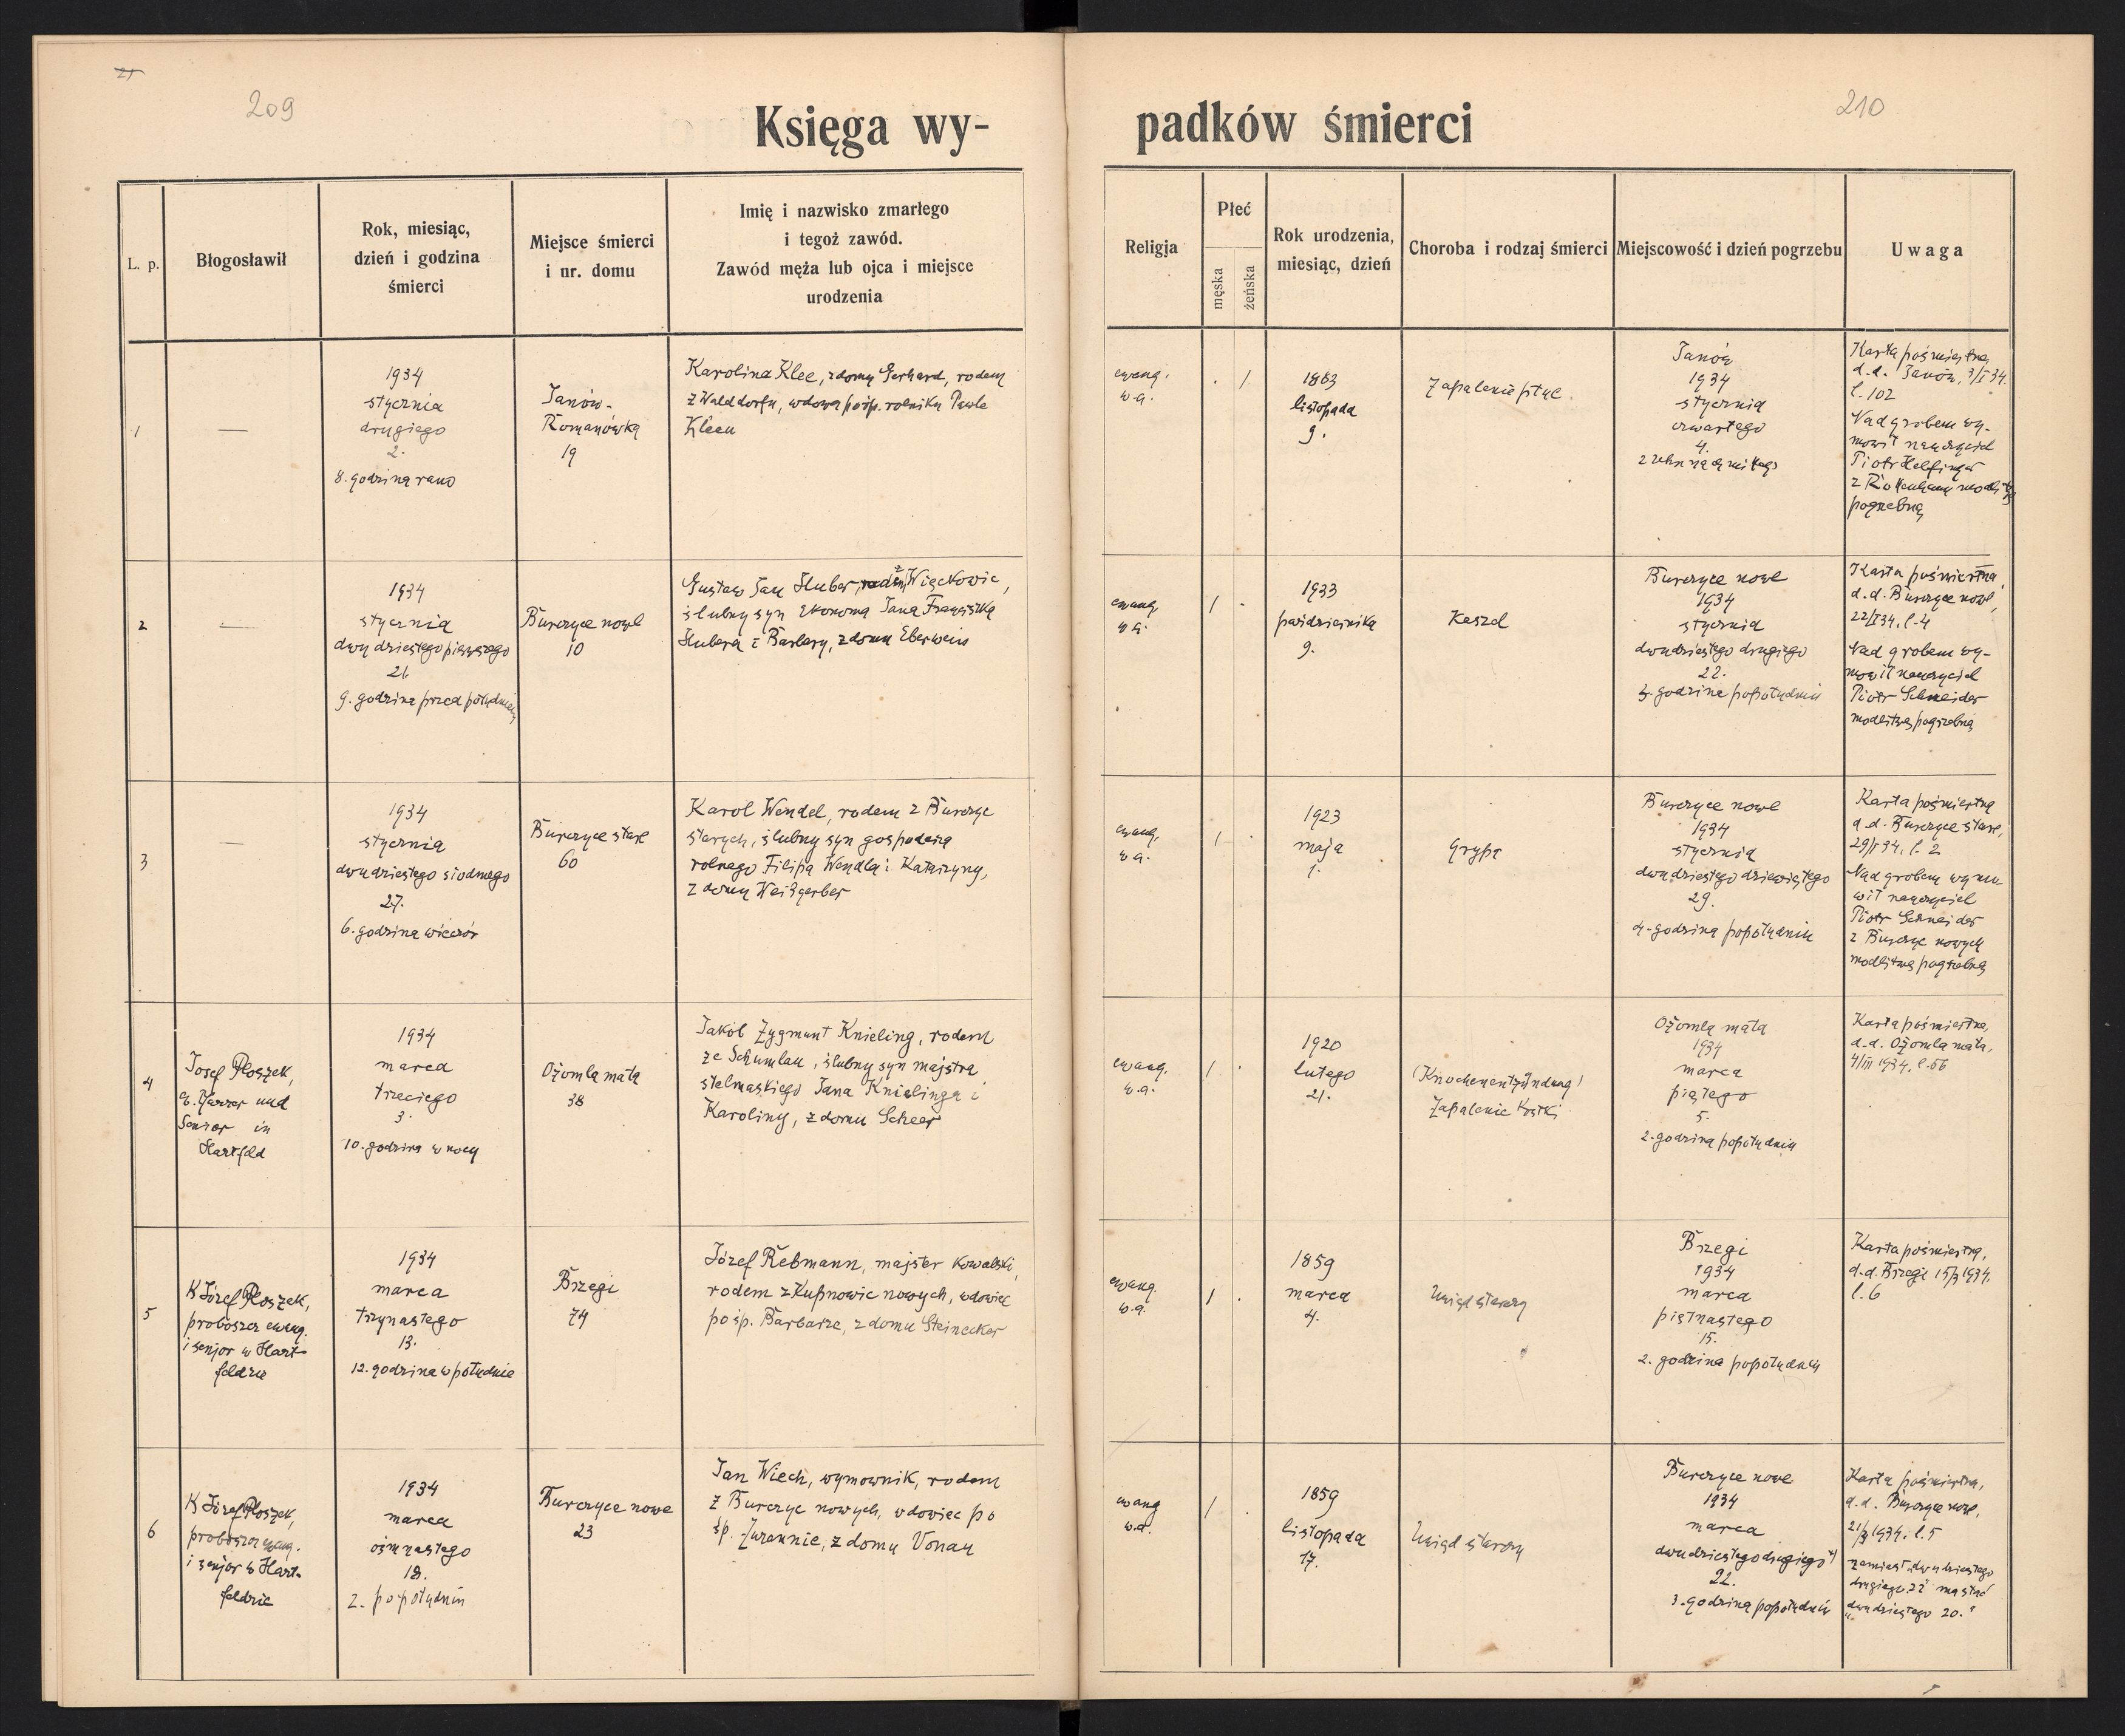 21
209
210
Księga wy-
padków śmierci
L. p.
Błogosławił
Rok, miesiąc,
dzień i godzina
śmierci
Miejsce śmierci
i nr. domu
Imię i nazwisko zmarłego
i tegoż zawód.
Zawód męża lub ojca i miejsce
urodzenia
Religja
Płeć
męska
żeńska
Rok urodzenia,
miesiąc, dzień
Choroba i rodzaj śmierci
Miejscowość i dzień pogrzebu
Uwaga
1
—
1934
stycznia
drugiego
2.
8. godzina rano
Janów-
Romanówka
19
Karolina Klee, z domu Gerhard, rodem
z Walddorfu, wdowa po śp. rolniku Pawle
Kleeu
ewang.
w.a.
. /
1863
listopada
9.
Zapalenie płuc
Janów
1934
stycznia
czwartego
4.
Karta pośmiertna
d.d. Janów, 3/I 34.
l. 102
Nad grobem wy-
mowił nauczyciel
Piotr
z
pogrzebną
2
—
1934
stycznia
dwudziestego pierwszego
21.
9. godzina przed południem
Burczyce nowe
10
Gustaw Jan Huber, z Więckowic,
ślubny syn ekonoma Jana Franciszka
Hubera i Barbary, z domu Eberwein
ewang.
w.a.
/ .
1933
października
9.
Kaszel
Burczyce nowe
1934
stycznia
dwudziestego drugiego
22.
godzina popołudniu
Karta pośmiertna,
d.d. Burczyce nowe,
22/I 34. l. 4
Nad grobem wy-
mowił nauczyciel
Piotr Schneider
modlitwę pogrzebną
3
—
1934
stycznia
dwudziestego siódmego
27.
6. godzina wieczór
Burczyce stare
60
Karol Wendel, rodem z Burczyc
starych, ślubny syn gospodarza
rolnego Filipa Wendla i Katarzyny,
z domu Weißgerber
ewang.
w.a.
/ .
1923
maja
1.
Grypa
Burczyce nowe
1934
stycznia
dwudziestego dziewiątego
29.
4. godzina popołudniu
Karta pośmiertna
d.d. Burczyce stare,
29/I 34. l. 2
Nad grobem wymo-
wił nauczyciel
Piotr Schneider
z Burczyc nowych
modlitwę pogrzebną
4
Josef Płoszek,
ev. Pfarrer und
Senior in
Hartfeld
1934
marca
trzeciego
3.
10. godzina w nocy
Ożomla mała
38
Jakób Zygmunt Knieling, rodem
ze Schumlau, ślubny syn majstra
stelmaskiego Jana Knielinga i
Karoliny, z domu Scheer
ewang.
w.a.
/ .
1920
lutego
21.
(Knochenentzündung)
Zapalenie kostki
Ożomla mała
1934
marca
piątego
5.
2. godzina popołudniu
Karta pośmiertna,
d.d. Ożomla mała,
4/III 1934. l. 56
5
X Józef Płoszek,
proboszcz ewang.
i senjor w Hart-
feldzie
1934
marca
trzynastego
13.
12. godzina w południe
Brzegi
74
Józef Rebmann, majster kowalski,
rodem z Kupnowic nowych, wdowiec
po śp. Barbarze, z domu Steinecker
ewang.
w.a.
/ .
1859
marca
4.
Uwiąd starczy
Brzegi
1934
marca
piętnastego
15.
2. godzina popołudniu
Karta pośmiertna,
d.d. Brzegi 15/3 1934.
l. 6
6
X Józef Płoszek,
proboszcz ewang.
i senjor w Hart-
feldzie
1934
marca
ośmnastego
18.
2. popołudniu
Burczyce nowe
23
Jan Wiech, wymownik, rodem
z Burczyc nowych, wdowiec po
śp. Zuzannie, z domu Vonau
ewang
w.a.
/ .
1859
listopada
17.
Uwiąd starczy
Burczyce nowe
1934
marca
dwudziestego drugiego *)
22.
3. godzina popołudniu
Karta pośmiertna,
d.d. Burczyce nowe,
21/3 1934. l. 5
zamiast „dwudziestego
drugiego 22" ma stać
„dwudziestego 20."